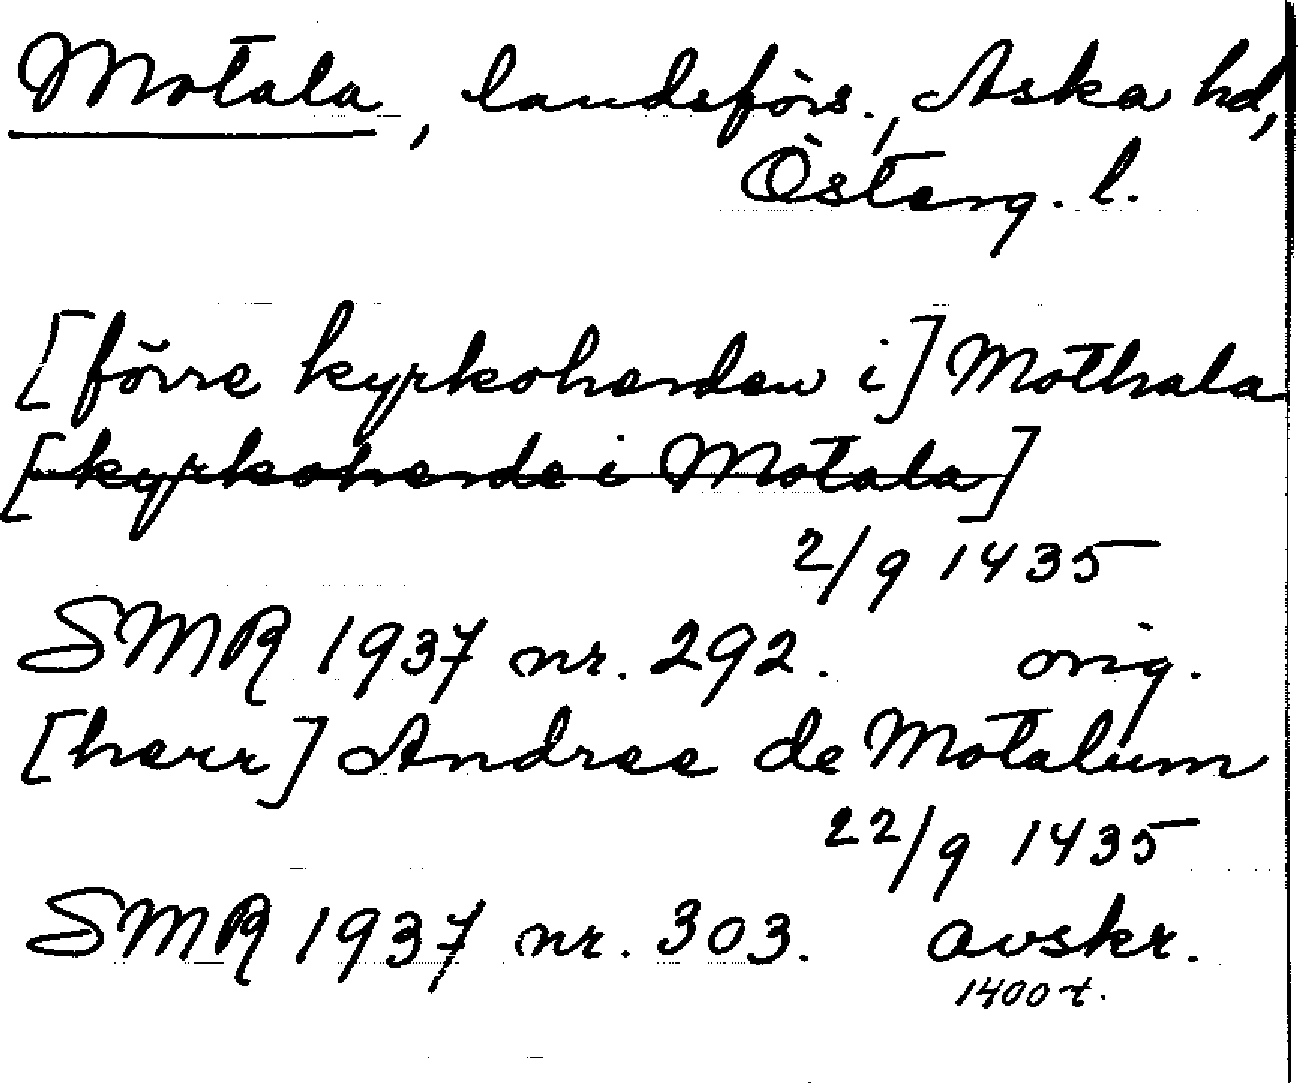 Motala, landsförs., Aska hd,
Österg. l.
[förre kyrkoherden i] Mothala
[kyrkoherde i Motala]
2/9 1435
SMR 1937 nr. 292. orig.
[herr] Andree de Motalum
22/9 1435
SMR 1937 nr. 303. avskr.
1400-t.